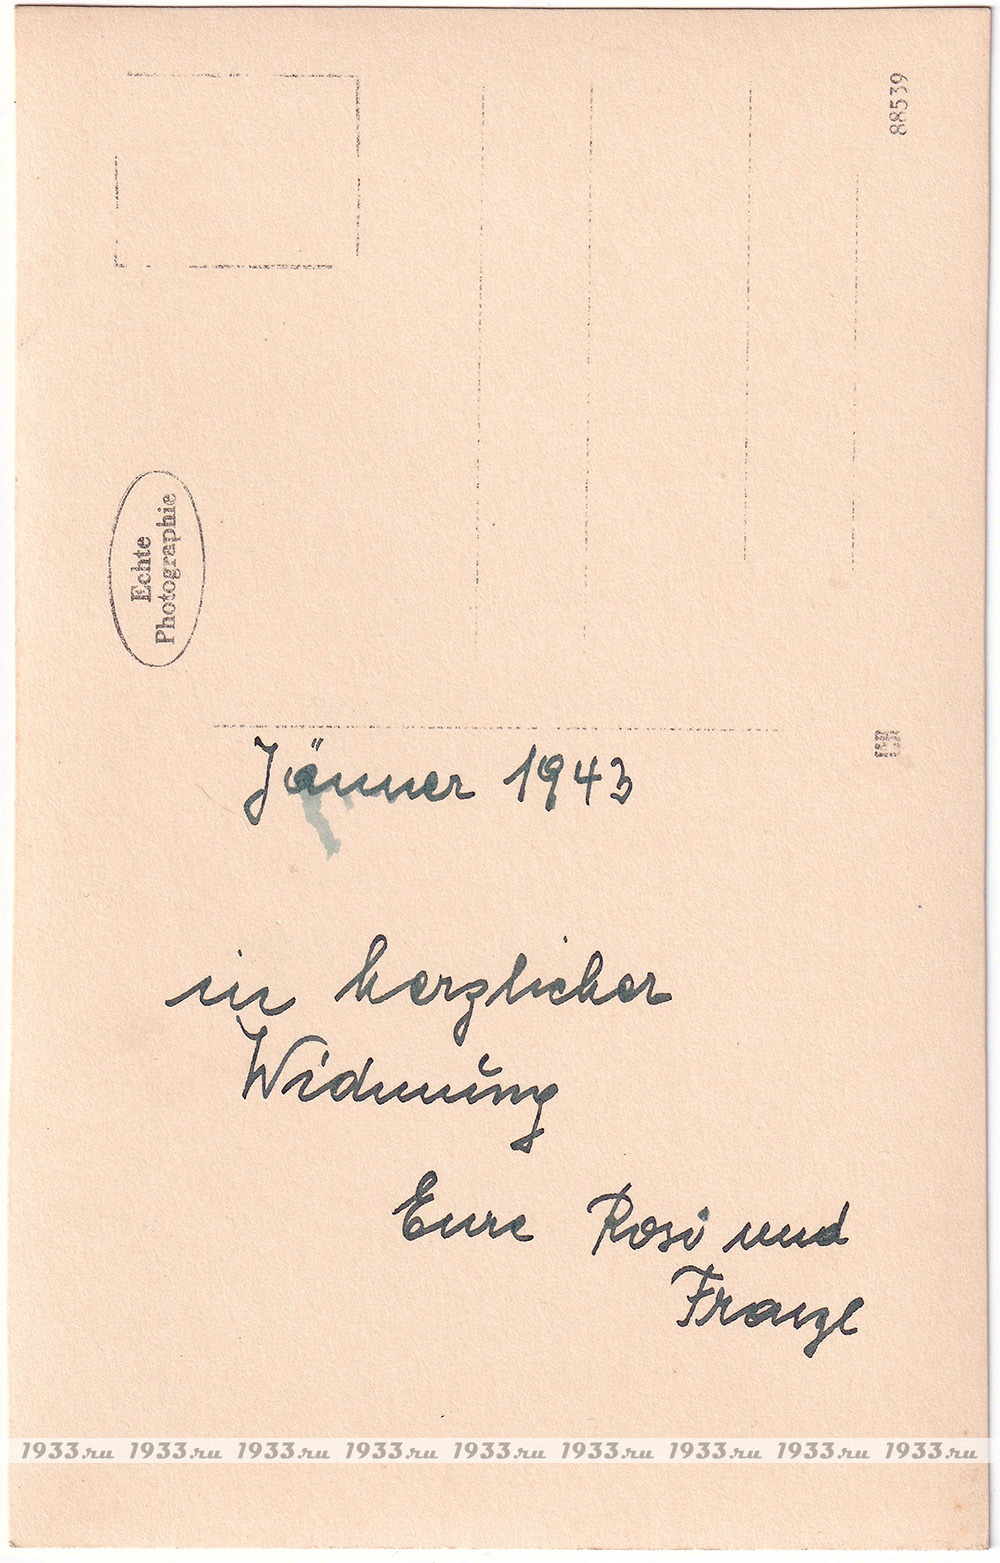 88539
Echte
Photographie
Jänner 1943
in herzlicher
Widmung
Eure Rosi und
Franzl
1933.ru 1933.ru 1933.ru 1933.ru 1933.ru 1933.ru 1933.ru 1933.ru 1933.ru